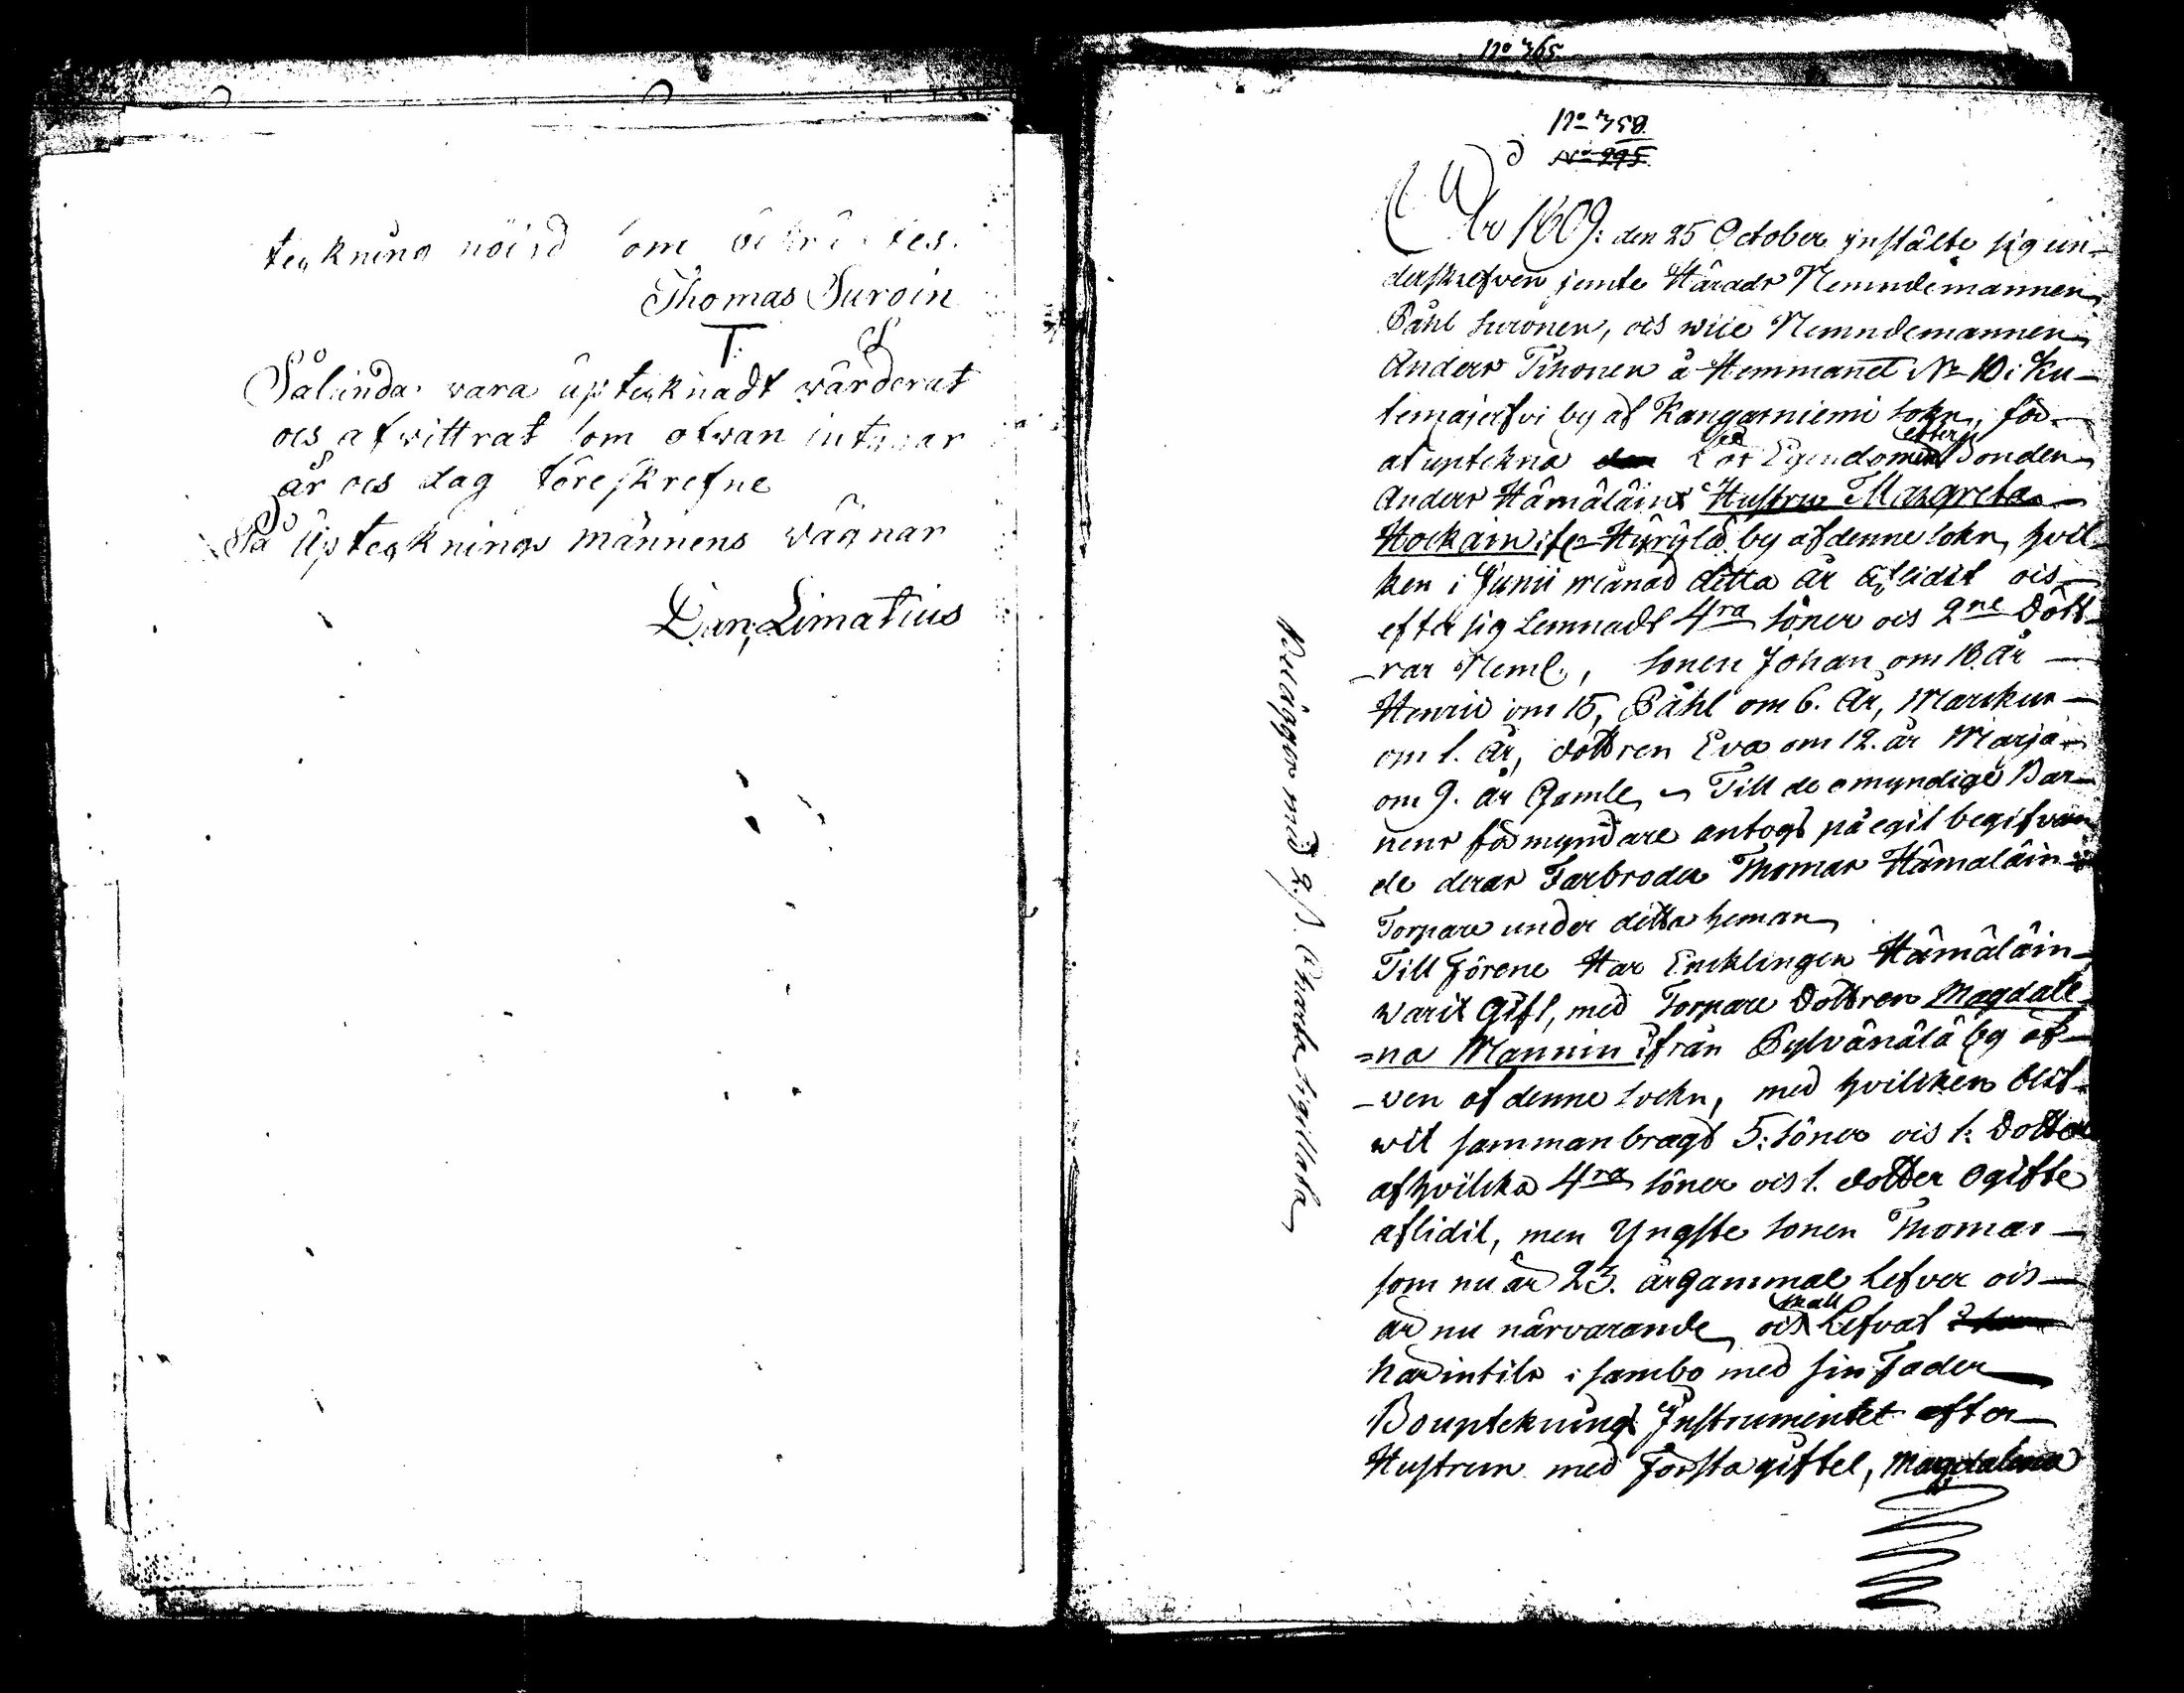 teckning nöjd som bekräftes.
Thomas Suroin
T S
Sålunda vara uptecknadt värderat
och afvittrat som ofwan intygar
år och dag föreskrefne
På Uptecknings männens vägnar
Dan. Limatius
No 365
No 358
No 295
Åhr 1809: den 25 October instälte sig un-
derskrefven jemte Härads Nemndemannen
Påhl Suronen, och wice Nemndemannen
Anders Tihonen å Hemmanet No 10 i Ku-
temajerfvi by af Kangasniemi Sokn, för
at uptekna Egendomen efter Bonden
Anders Hämäläins Hustru Margreta
Hockain ifr Hyrylä by af denne Sokn, hvil-
ken i Junii månad detta år aflidit och
efter sig Lemnadt 4ra Söner och 2ne Dött-
rar Neml., Sonen Johan om 18 år
Henric om 15, Påhl om 6. År, Marckus
om 1. år, dottren Eva om 12. år Marja
om 9. år Gamle, Till de omyndige Bar-
nens förmyndare antogs på egit begifvan
de deras Farbroder Thomas Hämäläin
Torpare under detta heman
Till Förene Har Encklingen Hämäläin
warit Gift, med Torpare Dottren Magdale
=na Mannin ifrån Pylvänälä by äf-
-ven af denne Sockn, med hvilcken blif-
wit sammanbragt 5: Söner och 1: Dotter
af hvilcka 4ra Söner och 1. dotter Ogifte
aflidit, men Yngste Sonen Thomas
som nu är 23. år gammal Lefver och
är nu närvarande och skall Lefvat
härintils i sambo med sin Fader
Bouptecknings Instrumentet efter
Hustrun med första giftet, Magdalena
Belägges med 2. s. Charta Sigillata